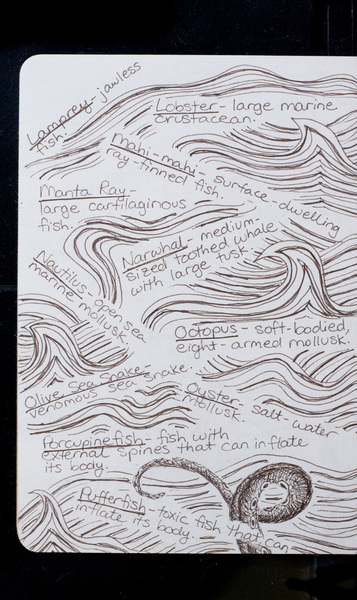 Lamprey- jawless
fish.
Lobster- large marine
crustacean.
Mahi-mahi- surface-dwelling
ray-finned fish.
Manta Ray-
large cartilaginous
fish.
Narwhal- medium-
sized toothed whale
with large tusk.
Nautilus- open sea
marine mollusk.
Octopus- soft-bodied,
eight-armed mollusk.
Olive Sea Snake-
venomous sea snake.
Oyster- salt-water
mollusk.
Porcupinefish- fish with
external spines that can inflate
its body.
Pufferfish- toxic fish that can
inflate its body.